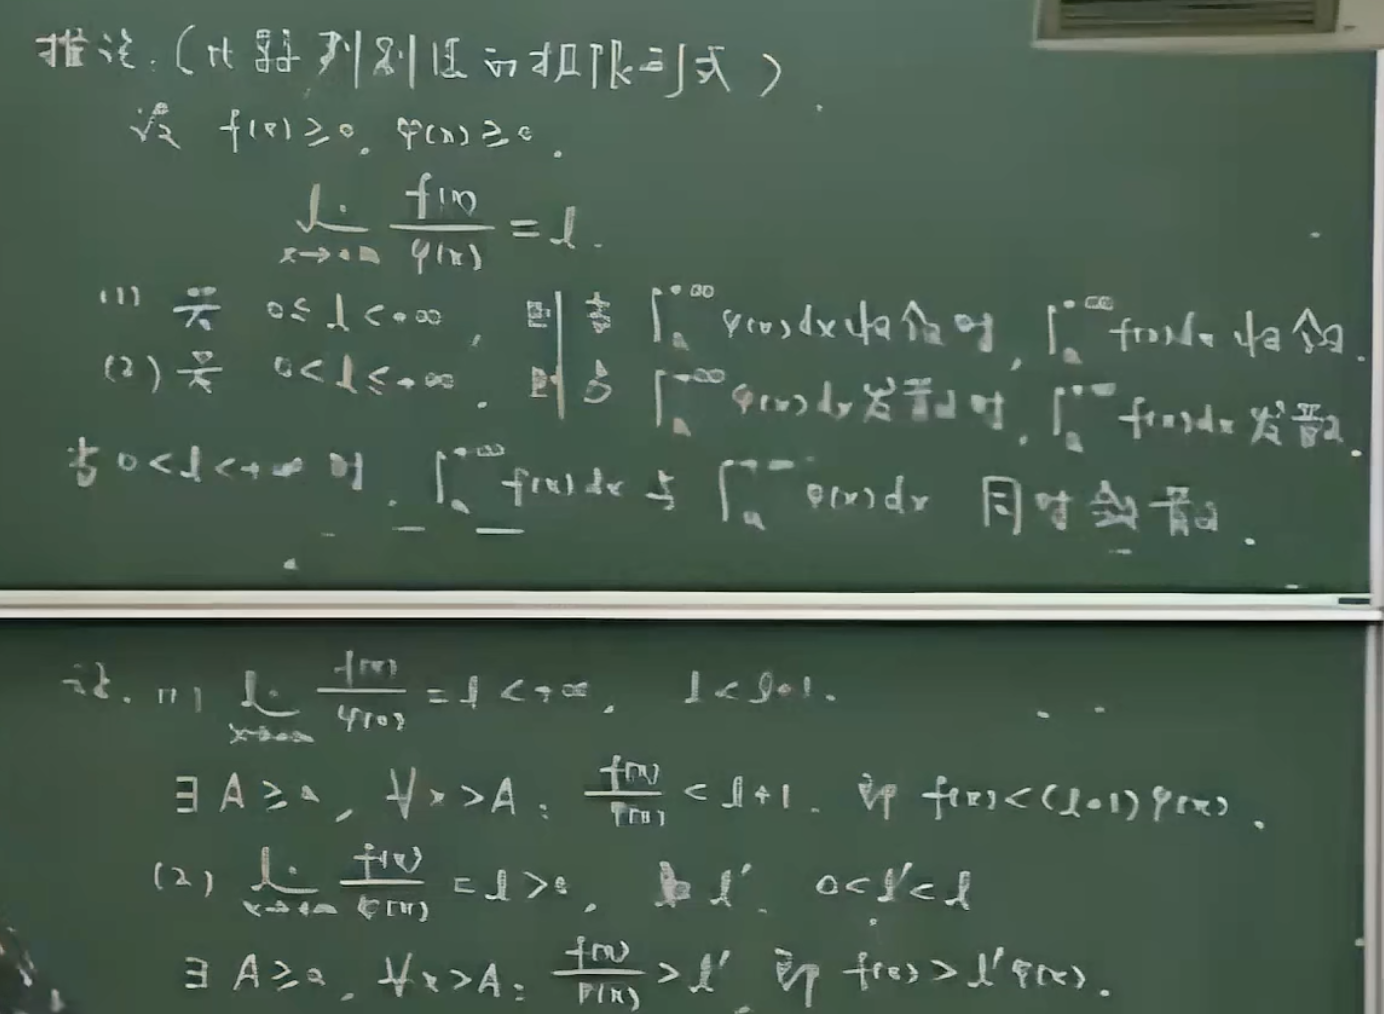 推论.(比较判别法的极限形式).
设 f(x)≥0, φ(x)≥0.
lim_{x→+∞} f(x)/φ(x) = l.
(1) 若 0≤l<+∞, 则当 ∫_a^{+∞} φ(x)dx 收敛时, ∫_a^{+∞} f(x)dx 收敛.
(2) 若 0<l≤+∞, 则当 ∫_a^{+∞} φ(x)dx 发散时, ∫_a^{+∞} f(x)dx 发散.
当 0<l<+∞ 时, ∫_a^{+∞} f(x)dx 与 ∫_a^{+∞} φ(x)dx 同时敛散.
证. (1) lim_{x→+∞} f(x)/φ(x) = l <+∞, l<l+1.
∃ A≥a, ∀x>A: f(x)/φ(x) < l+1. 即 f(x)<(l+1)φ(x).
(2) lim_{x→+∞} f(x)/φ(x) = l>0, 取 l′. 0<l′<l
∃ A≥a, ∀x>A: f(x)/φ(x) > l′, 即 f(x)>l′φ(x).